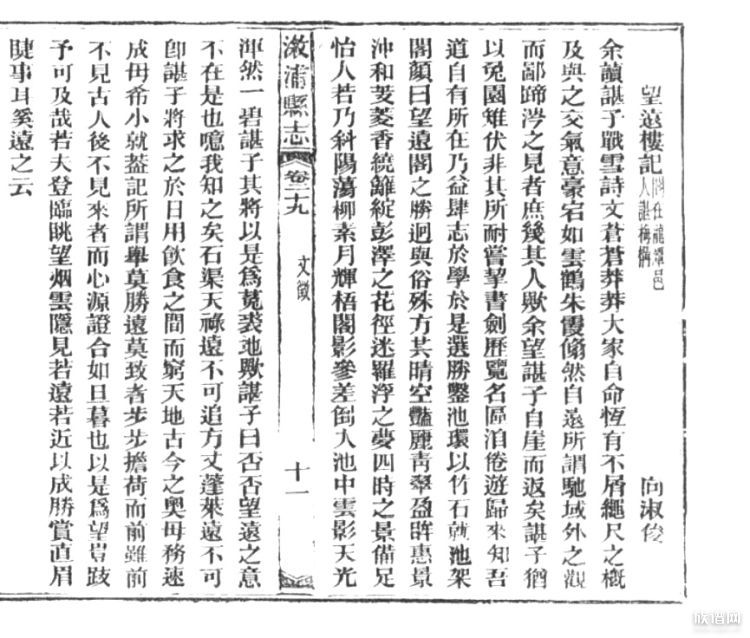 望遠樓記 閣在龍潭邑人諶梅構 向淑俊
余讀諶子戰雪詩文蒼蒼莽莽大家自命恆有不屑繩尺之概
及與之交氣意豪宕如雲鶴朱霞翛然自遠所謂馳域外之觀
而鄙蹄涔之見者庶幾其人歟余望諶子自崖而返矣諶子猶
以兔園雉伏非其所耐嘗挈書劍歷覽名區洎倦遊歸來知吾
道自有所在乃益肆志於學於是選勝鑿池環以竹石就池架
閣顏曰望遠閣之勝迥與俗殊方其晴空豔麗靑翠盈眸惠景
沖和芰菱香繞籬綻彭澤之花徑迷羅浮之夢四時之景備足
怡人若乃斜陽蕩柳素月輝梧閣影參差倒入池中雲影天光
漵浦縣志 卷二十九 文徵 十一
渾然一碧諶子其將以是爲菟裘地歟諶子曰否否望遠之意
不在是也噫我知之矣石渠天祿遠不可追方丈蓬萊遠不可
卽諶子將求之於日用飲食之間而窮天地古今之奧毋務速
成毋希小就葢記所謂舉莫勝遠莫致者步步擔荷而前雖前
不見古人後不見來者而心源證合如旦暮也以是爲望豈跂
予可及哉若夫登臨眺望烟雲隱見若遠若近以成勝賞直眉
睫事耳奚遠之云
族譜网